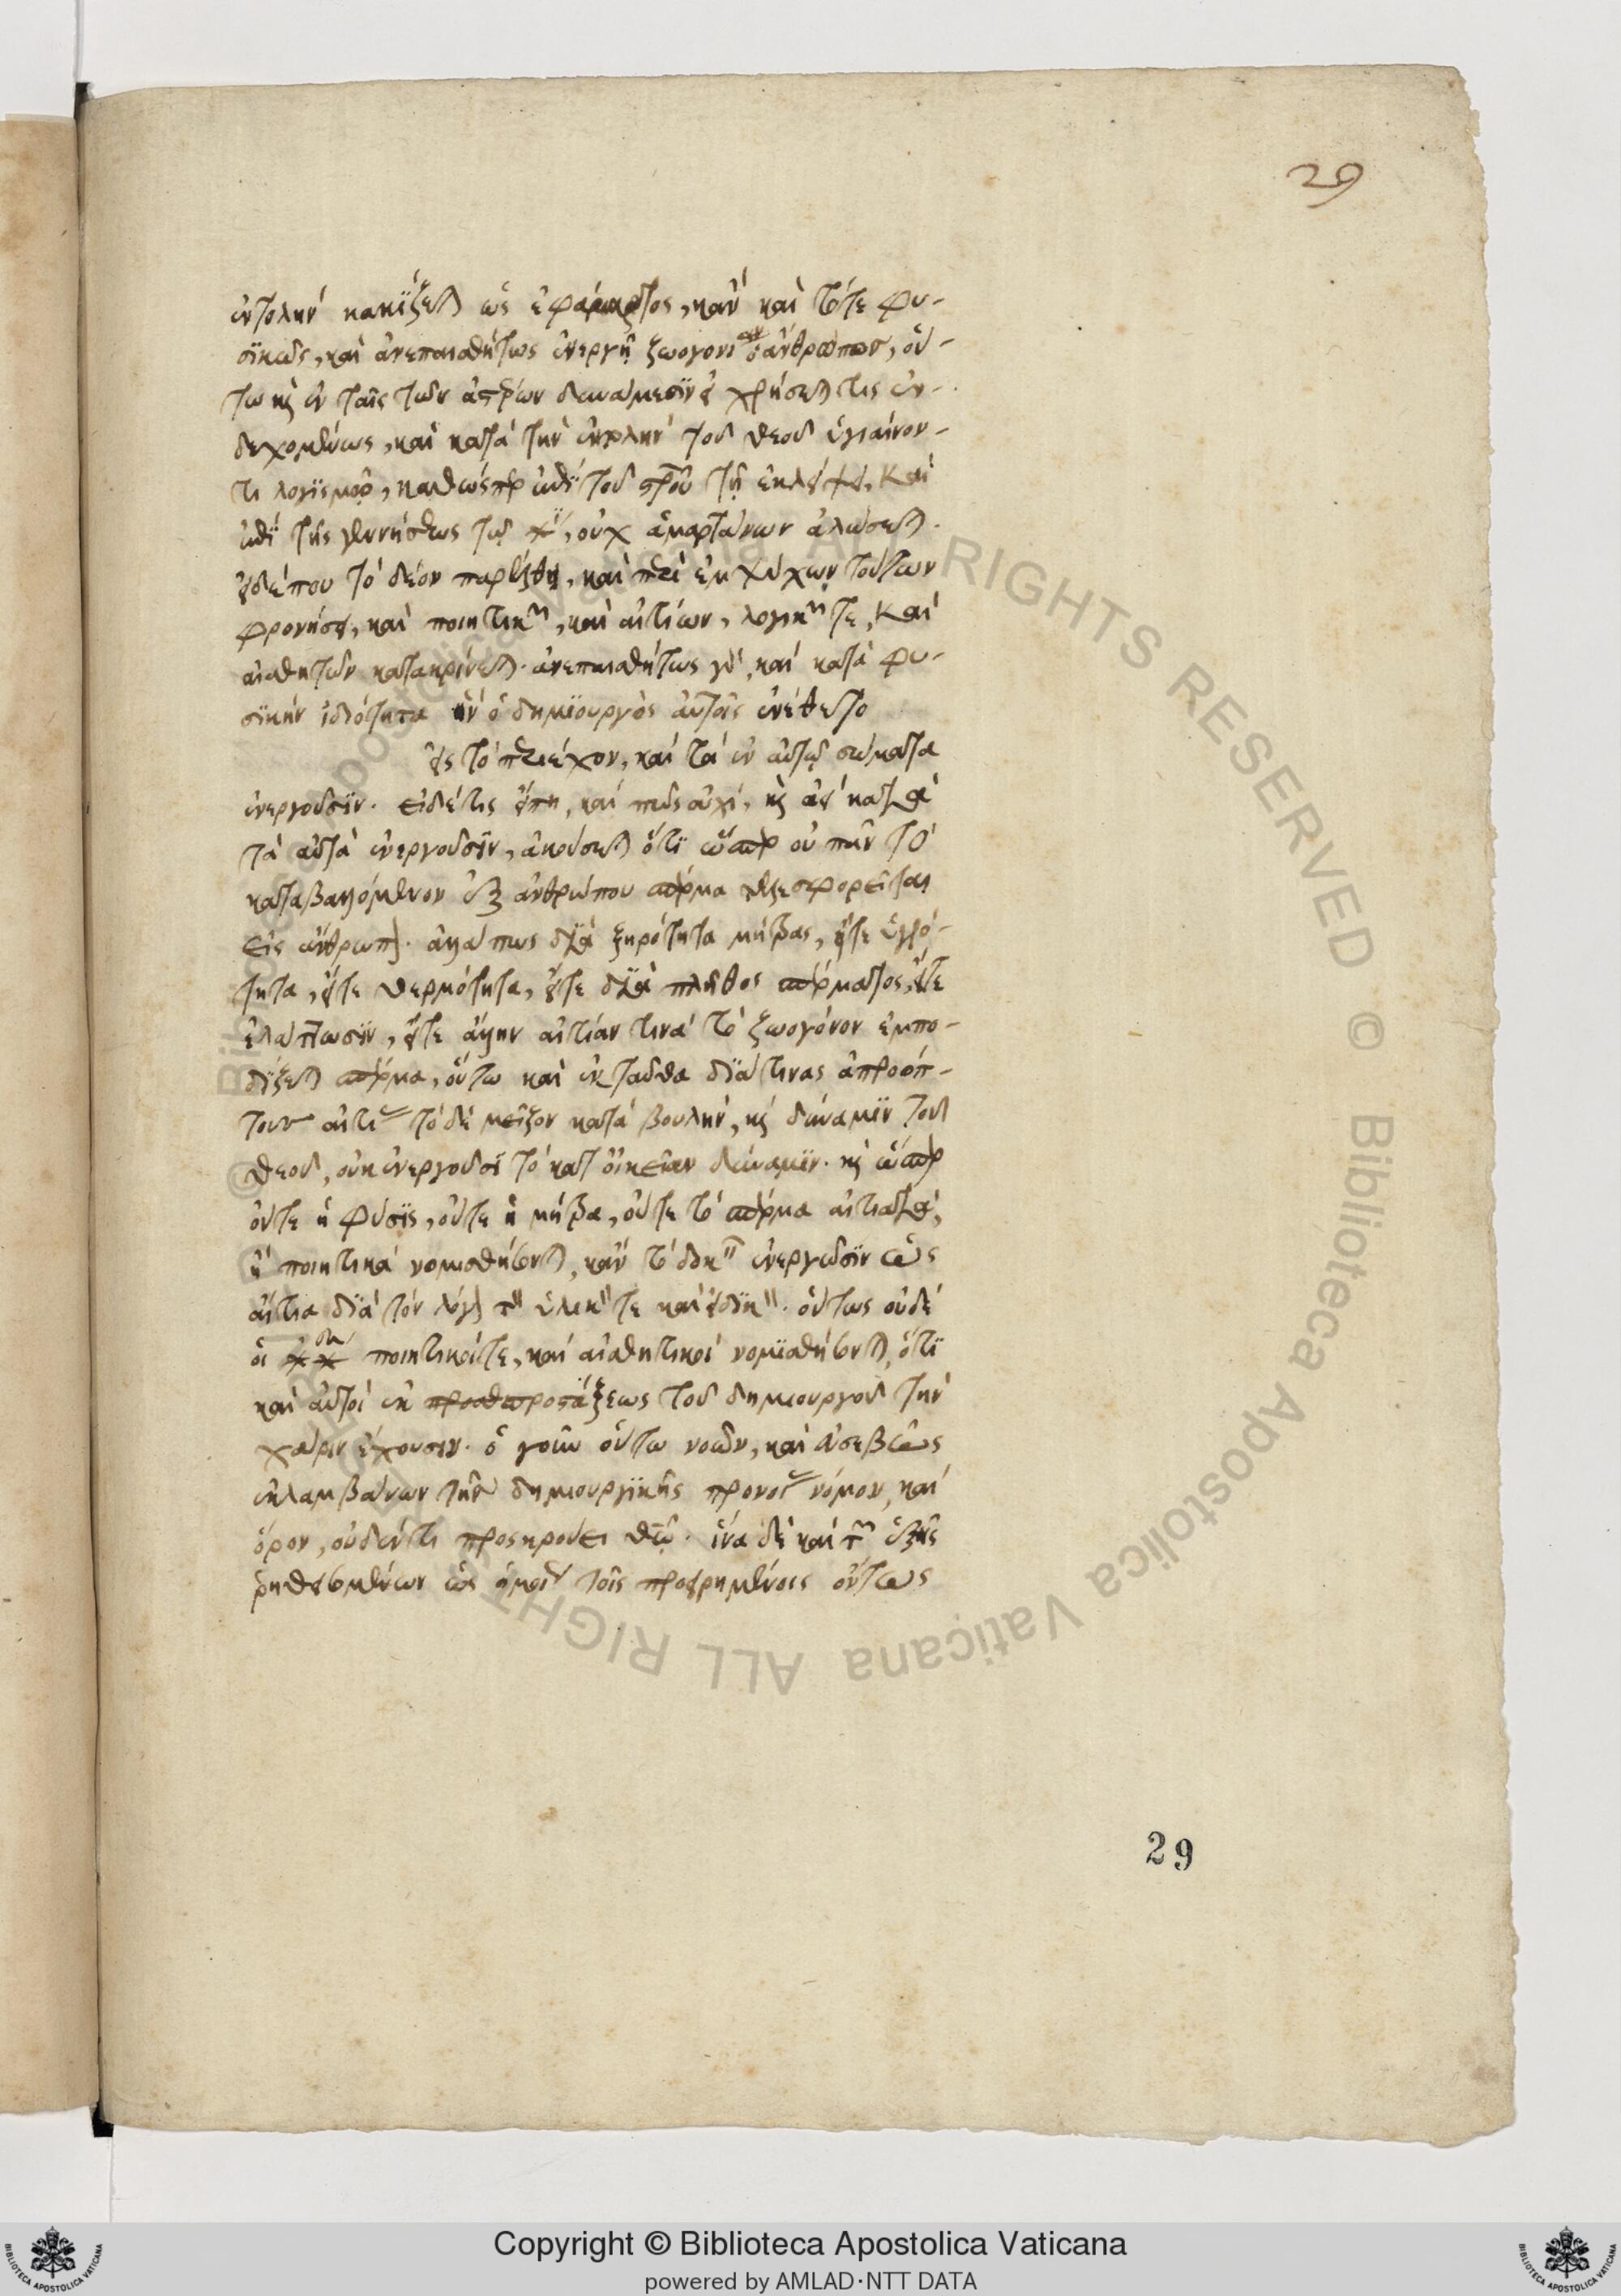 29
ἐντολὴν κακίζεται ὡς ἐφάμαρτος, κἂν καὶ τότε φυ-
σϊκῶς, καὶ ἀνεπαισθήτως ἐνεργῇ ζωογονι ἄνθρωπον, οὕ-
τω κὶ ἐν ταῖς τῶν ἀστέρων δυνάμεσϊν εἰ χρήσεται τις ἐν-
δεχομένως, καὶ κατὰ τὴν ἐντολὴν τοῦ θεοῦ ὑγιαίνον-
τι λογϊσμῷ, καθώσπερ ἐπὶ τοῦ σταυροῦ τῇ ἐκλείψει, καὶ
ἐπὶ τῆς γεννήσεως τῷ, οὐχ ἁμαρτάνων ἁλώσεται.
εἰ δέ που τὸ δέον παρέλθῃ, καὶ περὶ ἐμψύχων τούτων
φρονήσει, καὶ ποιητικῶν, καὶ αἰτίων, λογικῶν τε, καὶ
αἰσθητῶν κατακρίνεται. ἀνεπαισθήτως γὰρ, καὶ κατὰ φυ-
σϊκὴν ἰδιότητα ἣν ὁ δημϊουργὸς αὐτοῖς ἐνέθετο
εἰς τὸ περιέχον, καὶ τὰ ἐν αὐτῷ σώματα
ἐνεργοῦσϊν. εἰ δέ τις εἴπῃ, καὶ πῶς οὐχί, κὶ ἀεὶ κατὰ
τὰ αὐτὰ ἐνεργοῦσϊν, ἀκούσεται ὅτϊ ὥσπερ οὐ πᾶν τὸ
καταβαλλόμενον ἐξ ἀνθρώπου σπέρμα τελεσφορεῖται
εἰς ἄνθρωπον. ἀλλά πως διὰ ξηρότητα μήτρας, εἴτε ὑγρό-
τητα, εἴτε θερμότητα, εἴτε διὰ πλῆθος σπέρματος, εἴτε
ἐλάττωσϊν, εἴτε ἄλλην αἰτίαν τινὰ τὸ ζωογόνον ἐμπο-
δϊζεται σπέρμα, οὕτω καὶ ἐνταῦθα διά τινας ἀπροόπ-
τους αἰτίας τὸ δὲ μεῖζον κατὰ βουλὴν, κὶ δύναμϊν τοῦ
θεοῦ, οὐκ ἐνεργοῦσϊ τὸ κατ οἰκείαν δύναμϊν. κὶ ὥσπερ
οὔτε ἡ φύσϊς, οὔτε ἡ μήτρα, οὔτε τὸ σπέρμα αἰτιατὰ,
ἢ ποιητικὰ νομισθήσονται, κἂν τὸ ἐνεργῶσϊν ὡς
αἴτια διὰ τὸν λόγον τὸν ὑλικόν τε καὶ εἰδικόν. οὕτως οὐδὲ
οἱ ποιητικοί τε, καὶ αἰσθητικοὶ νομϊσθήσονται, ὅτϊ
καὶ αὐτοὶ ἐκ προστάξεως τοῦ δημιουργοῦ τὴν
χάριν ἔχουσιν. ὁ γοῦν οὕτω νοῶν, καὶ εὐσεβῶς
ἐκλαμβάνων τῆς δημιουργϊκῆς προνοίας νόμον, καὶ
ὅρον, οὐδέν τι προσκρούει θεῷ. ἵνα δὲ καὶ τῶν ἑξῆς
ῥηθησομένων ὡς τοῖς προειρημένοις οὕτως
29
Copyright © Biblioteca Apostolica Vaticana
powered by AMLAD·NTT DATA
© Biblioteca Apostolica Vaticana ALL RIGHTS RESERVED